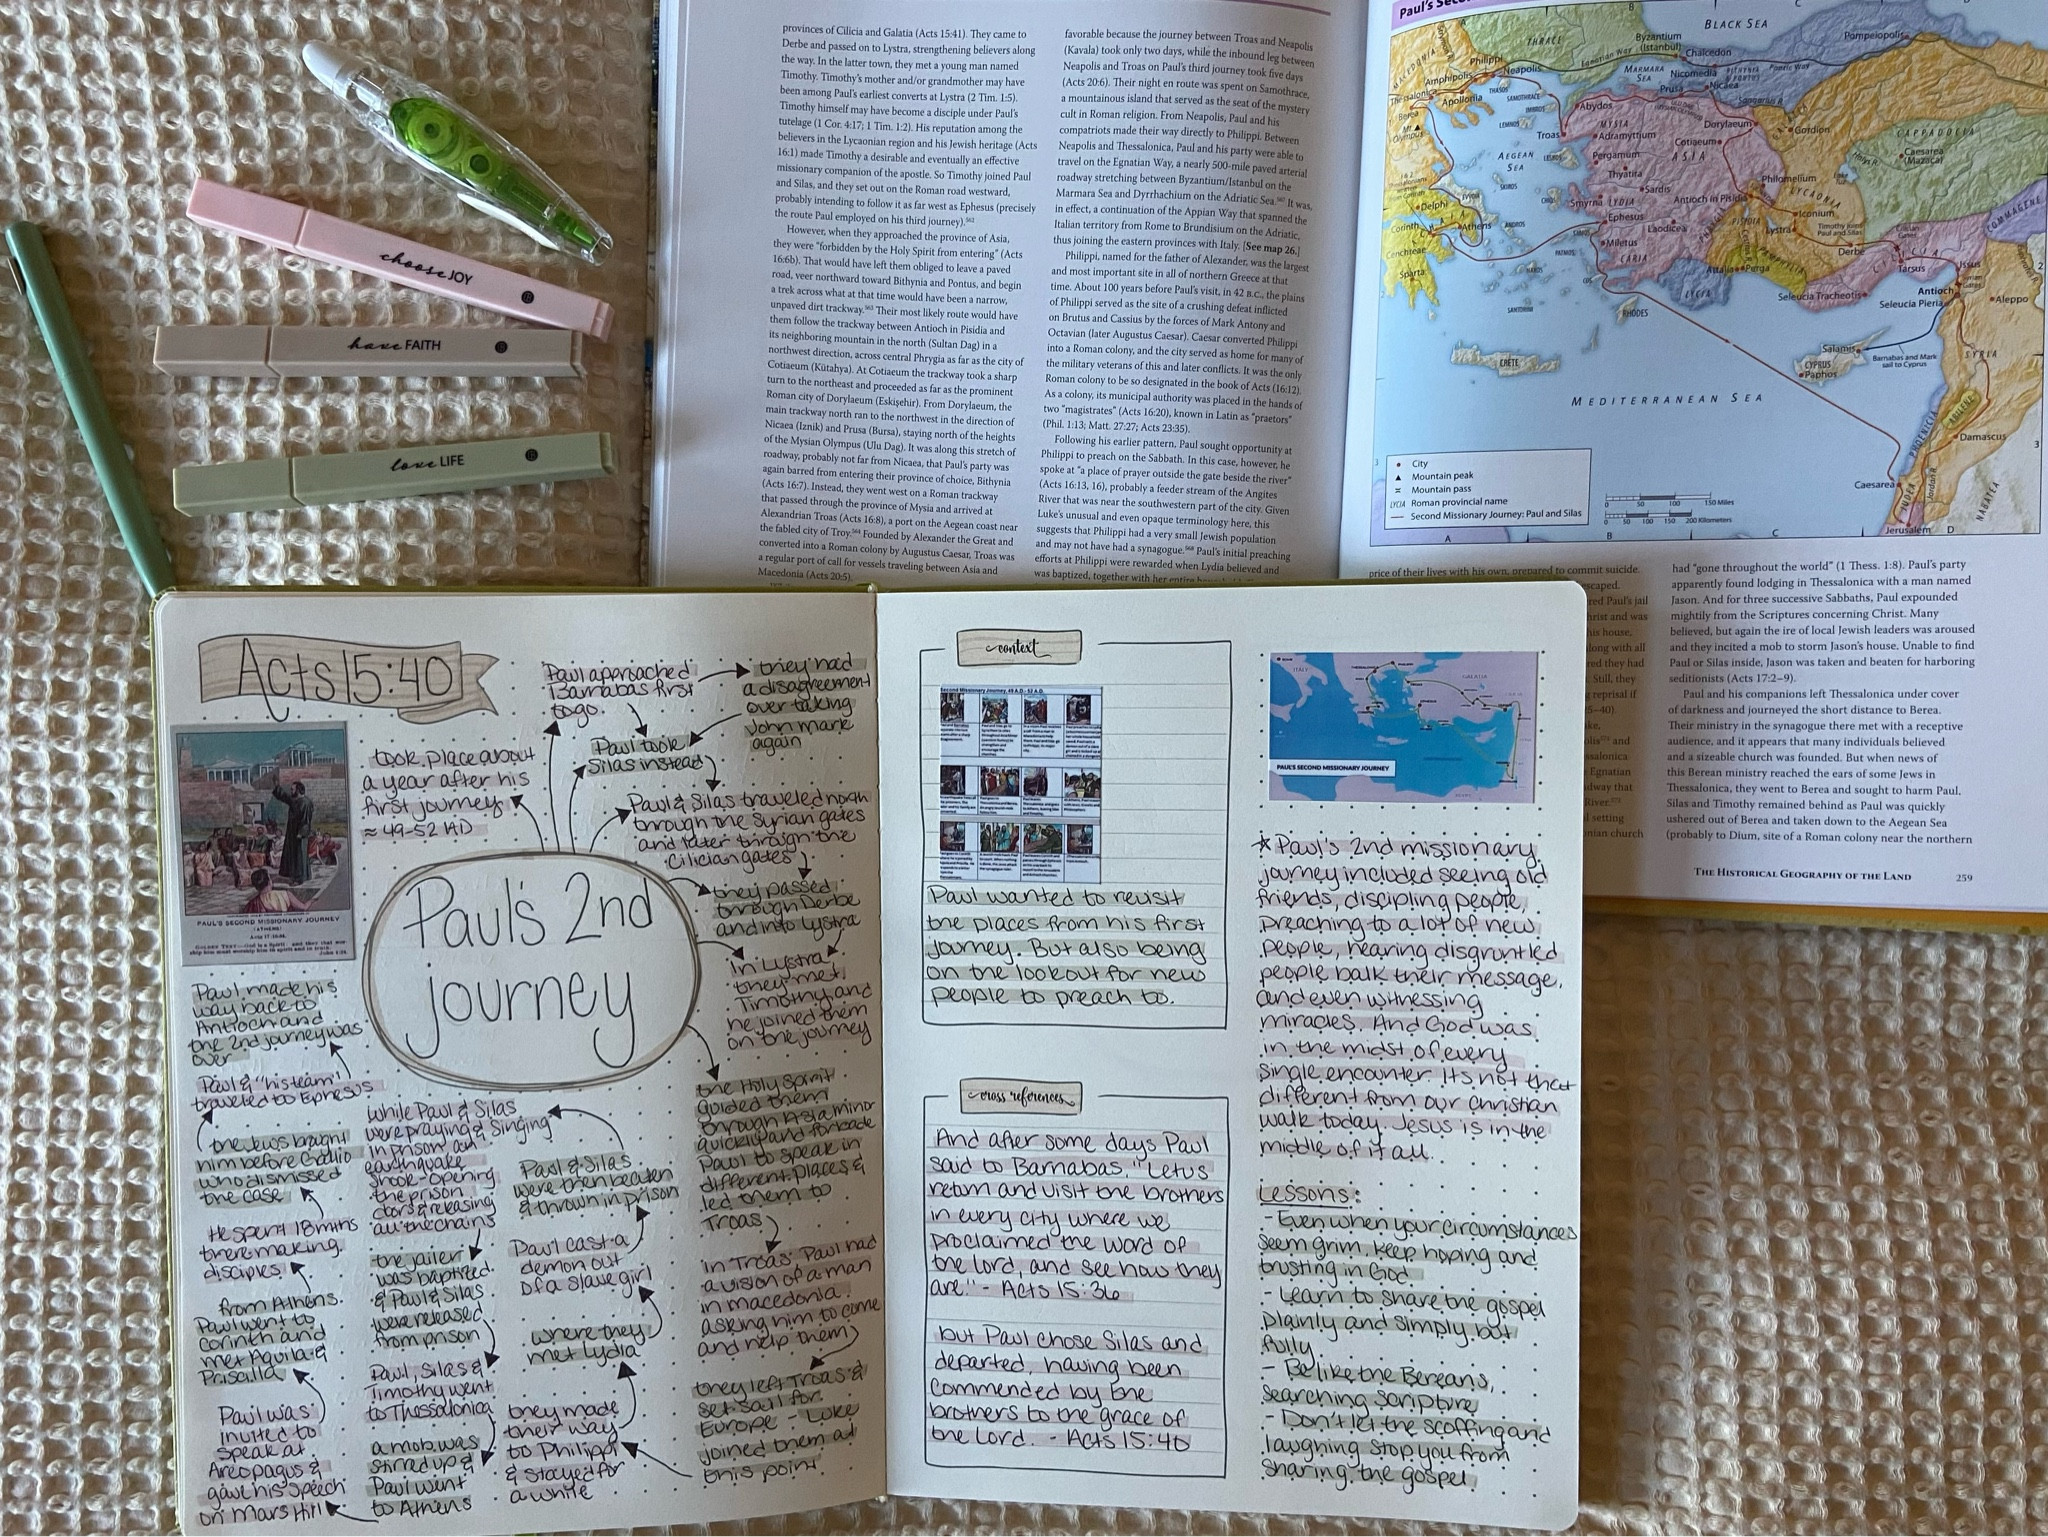 choose JOY
have FAITH
love LIFE
provinces of Cilicia and Galatia (Acts 15:41). They came to
Derbe and passed on to Lystra, strengthening believers along
the way. In the latter town, they met a young man named
Timothy. Timothy's mother and/or grandmother may have
been among Paul's earliest converts at Lystra (2 Tim. 1:5).
Timothy himself may have become a disciple under Paul's
tutelage (1 Cor. 4:17; 1 Tim. 1:2). His reputation among the
believers in the Lycaonian region and his Jewish heritage (Acts
16:1) made Timothy a desirable and eventually an effective
missionary companion of the apostle. So Timothy joined Paul
and Silas, and they set out on the Roman road westward,
probably intending to follow it as far west as Ephesus (precisely
the route Paul employed on his third journey).562
However, when they approached the province of Asia,
they were "forbidden by the Holy Spirit from entering" (Acts
16:6b). That would have left them obliged to leave a paved
road, veer northward toward Bithynia and Pontus, and begin
a trek across what at that time would have been a narrow,
unpaved dirt trackway.563 Their most likely route would have
them follow the trackway between Antioch in Pisidia and
its neighboring mountain in the north (Sultan Dag) in a
northwest direction, across central Phrygia as far as the city of
Cotiaeum (Kütahya). At Cotiaeum the trackway took a sharp
turn to the northeast and proceeded as far as the prominent
Roman city of Dorylaeum (Eskişehir). From Dorylaeum, the
main trackway north ran to the northwest in the direction of
Nicaea (Iznik) and Prusa (Bursa), staying north of the heights
of the Mysian Olympus (Ulu Dag). It was along this stretch of
roadway, probably not far from Nicaea, that Paul's party was
again barred from entering their province of choice, Bithynia
(Acts 16:7). Instead, they went west on a Roman trackway
that passed through the province of Mysia and arrived at
Alexandrian Troas (Acts 16:8), a port on the Aegean coast near
the fabled city of Troy.564 Founded by Alexander the Great and
converted into a Roman colony by Augustus Caesar, Troas was
a regular port of call for vessels traveling between Asia and
Macedonia (Acts 20:5).
favorable because the journey between Troas and Neapolis
(Kavala) took only two days, while the inbound leg between
Neapolis and Troas on Paul's third journey took five days
(Acts 20:6). Their night en route was spent on Samothrace,
a mountainous island that served as the seat of the mystery
cult in Roman religion. From Neapolis, Paul and his
compatriots made their way directly to Philippi. Between
Neapolis and Thessalonica, Paul and his party were able to
travel on the Egnatian Way, a nearly 500-mile paved arterial
roadway stretching between Byzantium/Istanbul on the
Marmara Sea and Dyrrhachium on the Adriatic Sea. It was,
in effect, a continuation of the Appian Way that spanned the
Italian territory from Rome to Brundisium on the Adriatic,
thus joining the eastern provinces with Italy. [See map 26.]
Philippi, named for the father of Alexander, was the largest
and most important site in all of northern Greece at that
time. About 100 years before Paul's visit, in 42 B.C., the plains
of Philippi served as the site of a crushing defeat inflicted
on Brutus and Cassius by the forces of Mark Antony and
Octavian (later Augustus Caesar). Caesar converted Philippi
into a Roman colony, and the city served as home for many of
the military veterans of this and later conflicts. It was the only
Roman colony to be so designated in the book of Acts (16:12).
As a colony, its municipal authority was placed in the hands of
two "magistrates" (Acts 16:20), known in Latin as "praetors"
(Phil. 1:13; Matt. 27:27; Acts 23:35).
Following his earlier pattern, Paul sought opportunity at
Philippi to preach on the Sabbath. In this case, however, he
spoke at "a place of prayer outside the gate beside the river"
(Acts 16:13, 16), probably a feeder stream of the Angites
River that was near the southwestern part of the city. Given
Luke's unusual and even opaque terminology here, this
suggests that Philippi had a very small Jewish population
and may not have had a synagogue.568 Paul's initial preaching
efforts at Philippi were rewarded when Lydia believed and
was baptized, together with her entire
Paul's
BLACK SEA
Pompeiopolis
THRACE
Byzantium
(Istanbul)
Chalcedon
MACEDONIA
Philippi
Neapolis
Amphipolis
Thessalonica
Apollonia
Berea
Mt.
Olympus
MARMARA
SEA
Nicomedia
Nicaea
Prusa
THASOS
SAMOTHRACE
IMBROS
LEMNOS
Abydos
Troas
MYSIA
Adramyttium
Dorylaeum
Gordion
Cotiaeum
ASIA
CAPPADOCIA
Caesarea
(Mazaca)
AEGEAN
SEA
LESBOS
SKIROS
Pergamum
Thyatira
Sardis
Smyrna
LYDIA
Philomelium
LYCAONIA
Antioch in Pisidia
PISIDIA
Iconium
Lystra
Timothy joins
Paul and Silas
Derbe
Delphi
Corinth
Athens
Cenchreae
Sparta
ANDROS
Ephesus
Laodicea
Miletus
CARIA
PATMOS
Attalia
Perga
LYCIA
Seleucia Tracheotis
CILICIA
Tarsus
Issus
Antioch
Seleucia Pieria
Aleppo
COMMAGENE
SANTORINI
RHODES
CRETE
Salamis
CYPRUS
Paphos
Barnabas and Mark
sail to Cyprus
SYRIA
MEDITERRANEAN SEA
PHOENICIA
ABILENE
Damascus
Caesarea
JUDEA
Jordan
NABATEA
Jerusalem
City
Mountain peak
Mountain pass
LYCIA Roman provincial name
Second Missionary Journey: Paul and Silas
0 50 100 150 Miles
0 50 100 150 200 Kilometers
A B C D
price of their lives with his own, prepared to commit suicide.
had "gone throughout the world" (1 Thess. 1:8). Paul's party
apparently found lodging in Thessalonica with a man named
Jason. And for three successive Sabbaths, Paul expounded
mightily from the Scriptures concerning Christ. Many
believed, but again the ire of local Jewish leaders was aroused
and they incited a mob to storm Jason's house. Unable to find
Paul or Silas inside, Jason was taken and beaten for harboring
seditionists (Acts 17:2–9).
Paul and his companions left Thessalonica under cover
of darkness and journeyed the short distance to Berea.
Their ministry in the synagogue there met with a receptive
audience, and it appears that many individuals believed
and a sizeable church was founded. But when news of
this Berean ministry reached the ears of some Jews in
Thessalonica, they went to Berea and sought to harm Paul.
Silas and Timothy remained behind as Paul was quickly
ushered out of Berea and taken down to the Aegean Sea
(probably to Dium, site of a Roman colony near the northern
THE HISTORICAL GEOGRAPHY OF THE LAND 259
Acts 15:40
PAUL'S SECOND MISSIONARY JOURNEY
(ATHENS)
Paul's 2nd
journey
took place about
a year after his
first journey
≈ 49-52 AD
Paul approached
Barnabas first
to go
they had
a disagreement
over taking
John Mark
again
Paul took
Silas instead
Paul & Silas traveled north
through the Syrian gates
and later through the
Cilician gates
they passed
through Derbe
and into Lystra
In Lystra,
they met
Timothy and
he joined them
on the journey
the Holy Spirit
guided them
through Asia minor
quickly and forbade
Paul to speak in
different places &
led them to
Troas
in Troas, Paul had
a vision of a man
in macedonia
asking him to come
and help them
they left Troas &
set sail for
Europe - Luke
joined them at
this point
they made
their way
to Philippi
& stayed for
a while
where they
met Lydia
Paul cast a
demon out
of a slave girl
Paul & Silas
were then beaten
& thrown in prison
while Paul & Silas
were praying & singing
in prison an
earthquake
shook - opening
the prison
doors & releasing
all the chains
the jailer
was baptized
& Paul & Silas
were released
from prison
Paul, Silas &
Timothy went
to Thessalonica
a mob was
stirred up &
Paul went
to Athens
Paul was
invited to
speak at
Areopagus &
gave his speech
on Mars Hill
from Athens
Paul went to
corinth and
met Aquila &
Priscilla
He spent 18 mths
there making
disciples
the Jews brought
him before Gallio
who dismissed
the case
Paul & "his team"
traveled to Ephesus
Paul made his
way back to
Antioch and
the 2nd journey was
over
context
Second Missionary Journey, 49 A.D. - 52 A.D.
Paul wanted to revisit
the places from his first
journey. But also being
on the lookout for new
people to preach to.
cross references
And after some days Paul
said to Barnabas, "Let us
return and visit the brothers
in every city where we
proclaimed the word of
the Lord, and see how they
are." - Acts 15:36
but Paul chose Silas and
departed, having been
commended by the
brothers to the grace of
the Lord. - Acts 15:40
PAUL'S SECOND MISSIONARY JOURNEY
* Paul's 2nd missionary
journey included seeing old
friends, discipling people,
preaching to a lot of new
people, hearing disgruntled
people balk their message,
and even witnessing
miracles. And God was
in the midst of every
single encounter. It's not that
different from our christian
walk today. Jesus is in the
middle of it all.
Lessons:
- Even when your circumstances
seem grim, keep hoping and
trusting in God
- Learn to share the gospel
plainly and simply but
fully
- Be like the Bereans,
searching scripture
- Don't let the scoffing and
laughing stop you from
sharing the gospel